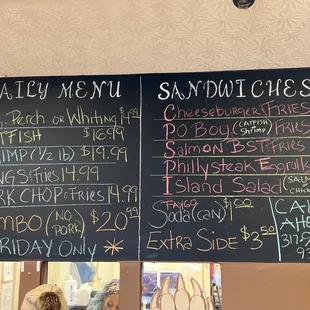 AILY MENU
Perch or Whiting $14.99
TFISH $16.99
IMP (1/2 lb) $19.99
NGS & Fries 14.99
RK CHOP & Fries 14.99
MBO (NO PORK) $20.99
FRIDAY ONLY *
SANDWICHES
Cheeseburger & FRIES
PO BOY (CATFISH Shrimp) FRIES
Salmon BST FRIES
Philly steak Eggrolls
Island Salad SALM CHICK
"FAYGO" Soda (CAN) $1.00
Extra Side $3.50
CAL
AHE
317-9
93